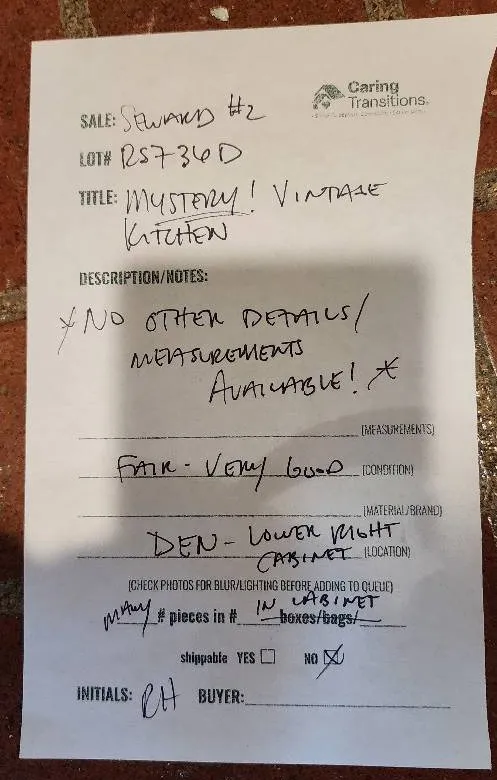 Caring
Transitions
SALE: SEWARD #2
LOT# RS736D
TITLE: MYSTERY! VINTAGE
KITCHEN
DESCRIPTION/NOTES:
* NO OTHER DETAILS/
MEASUREMENTS
AVAILABLE! *
(MEASUREMENTS)
FAIR - VERY GOOD (CONDITION)
(MATERIAL/BRAND)
DEN - LOWER RIGHT
CABINET (LOCATION)
(CHECK PHOTOS FOR BLUR/LIGHTING BEFORE ADDING TO QUEUE)
MANY # pieces in # IN CABINET boxes/bags/
shippable YES NO
INITIALS: RH BUYER: